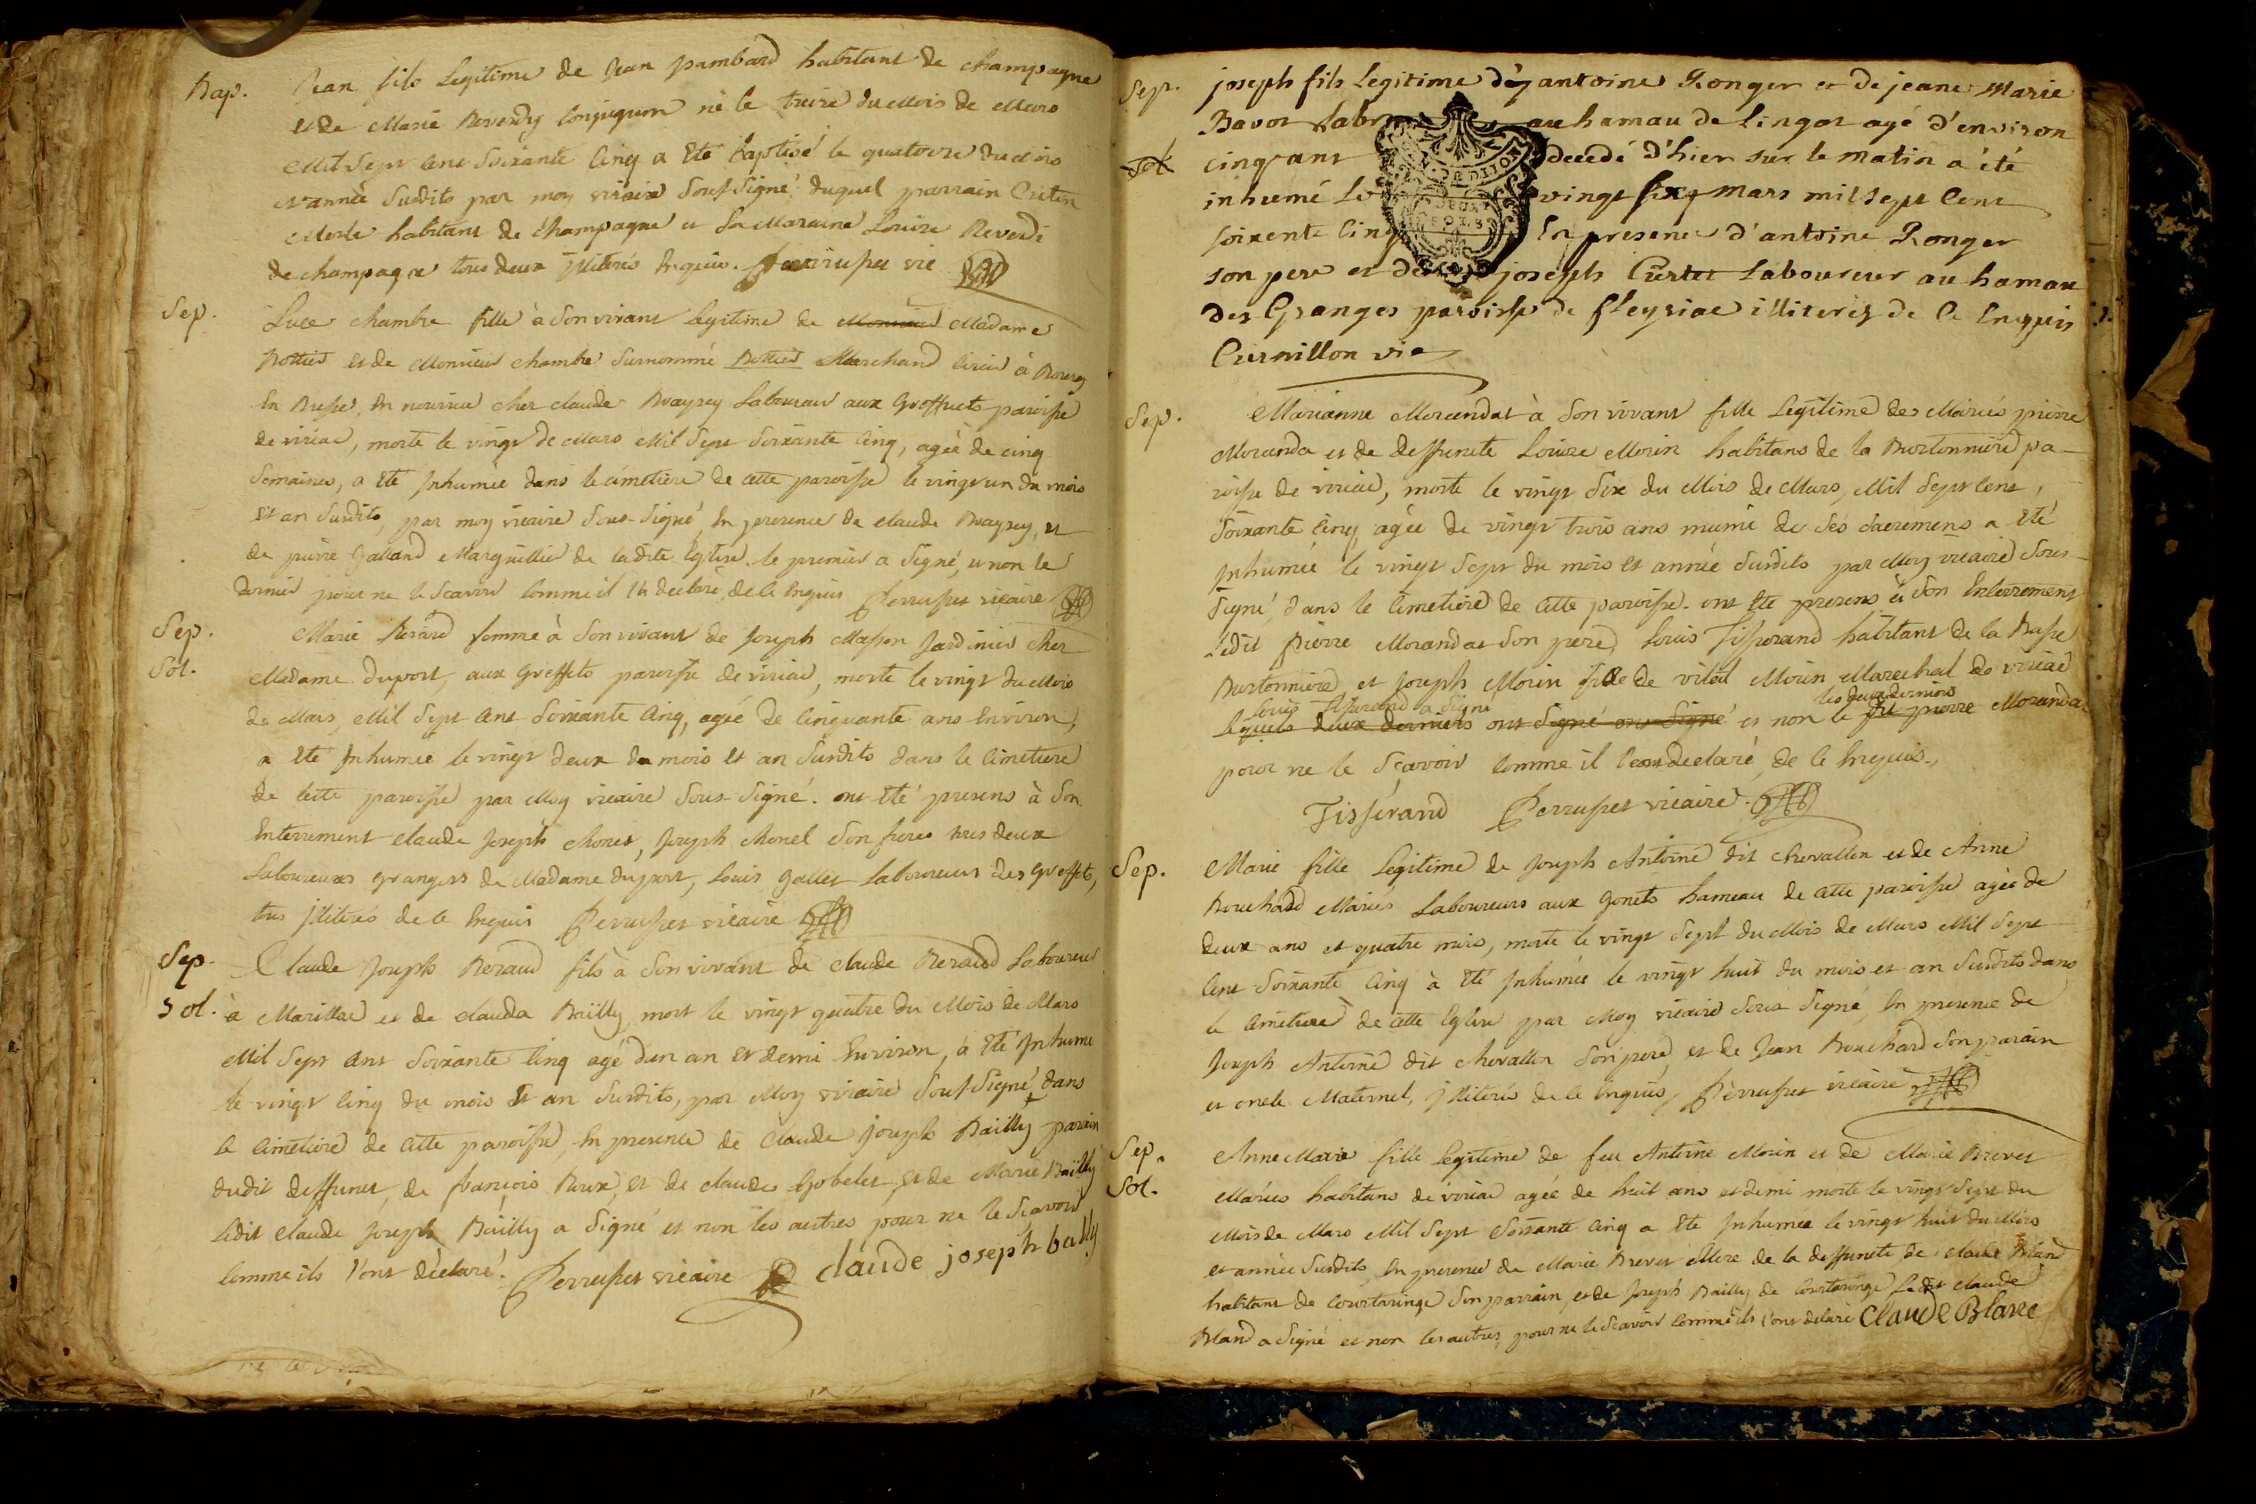 Bap. Jean fils Legitime de Jean pambard habitant de champagne
et de Marie Reverdy Conjugum né le treize du Mois de Mars
Mil Sept Cent Soixante Cinq a Eté Baptisé le quatorze du mois
et année Susdits par moy vicaire Souf-Signé duquel parrain
Merle habitant de Champagne et Sa Maraine Louise Reverdi
de champagne tous deux Jlliterés Enquis. Perruset vic
Sep. Luce chambre fille à Son vivant Legitime de Madame
Pottier et de Monsieur chambre Surnommé Pottier Marchand à Bourg
En Bresse, En nourrice chez claude Brayrey Laboureur aux Greffets paroisse
de viriac, morte le vingt de Mars Mil Sept Soixante Cinq, agée de cinq
Semaines, a Eté Jnhumée dans le cimetiere de cette paroisse le vingt un du mois
et an Susdits, par moy vicaire Sous-Signé En presence de claude Brayrey, et
de pierre Galland Marguillier de ladite Eglise. le premier a Signé, et non le
dernier pour ne le Scavoir Comme il l'a declaré, de ce Enquis Perruset vicaire
Sep. Marie Berard femme à Son vivant de Joseph Masson Jardinier chez
Sol. Madame duport, aux Greffets paroisse de viriac, morte le vingt du Mois
de Mars, Mil Sept Cent Soixante Cinq, agée de Cinquante ans Environ,
a Eté Jnhumée le vingt deux du mois et an Susdits dans le Cimetiere
de cette paroisse par Moy vicaire Sous-Signé. ont Eté presens à Son
Enterrement claude Joseph Monet, Joseph Monet Son frere tous deux
Laboureurs grangers de Madame duport, Louis Gallet Laboureur des Greffets,
tous Jlliterés de ce Enquis Perruset vicaire
Sep. Claude Joseph Beraud fils à Son vivant de claude Beraud Laboureur
Sol. à Marillac et de clauda Bailly mort le vingt quatre du Mois de Mars
Mil Sept Cent Soixante Cinq agé d'un an et demi Environ, à Eté Jnhumé
le vingt Cinq du mois Et an Susdits, par Moy vicaire Souf-Signé, dans
le Cimetiere de Cette paroisse, En presence de Claude Joseph Bailly parrain
dudit deffunct, de francois Roux, et de claude Gobelet, et de Marie Bailly
ledit Claude Joseph Bailly a Signé et non les autres pour ne le Scavoir
Comme ils l'ont déclaré. Perruset vicaire claude joseph bally
Sep. joseph fils Legitime d' antoine Ronger et de jeane Marie
Bavot au hamau de Lingat agé d'environ
Sol. cinq ans decedé d'hier sur le matin a été
inhumé vingt six Mars mil Sept Cent
soixente Cinq presence d'antoine Ronger
son pere et de joseph Curtet Laboureur au hamau
des Granges paroisse de fleyriac illiterez de Ce Enquis
Curnillon vic
Sep. Marianne Morandat à Son vivant fille Legitime des Mariés pierre
Moranda et de deffuncte Louise Morin habitans de la Burtonniere pa-
roisse de viriac, morte le vingt Six du Mois de Mars, Mil Sept Cent,
Soixante Cinq agée de vingt trois ans munie de Ses Sacremens a Eté
Jnhumée le vingt Sept du mois et année Susdits par Moy vicaire Sous-
Signé, dans le Cimetiere de Cette paroisse. ont Eté presens à Son Enterrement
Ledit Pierre Morandat Son pere, Louis Tisserand habitant de la Basse
Burtonniere, et Joseph Morin fils de Morin Marechal de viriac
Louis Tisserand a Signé les deux derniers
lequels deux derniers ont Signé ont Signé et non le fit pierre Moranda
pour ne le Scavoir Comme il l'ont declaré, de ce Enquis.
Tissérand Perruset vicaire.
Sep. Marie fille Legitime de Joseph Antoine dit chevallon et de Anne
Bouchard Mariés Laboureurs aux Gonets hameau de cette paroisse agée de
deux ans et quatre mois, morte le vingt Sept du Mois de Mars Mil Sept
Cent Soixante Cinq à Eté Jnhumée le vingt huit du mois et an Susdits dans
le Cimetiere de Cette Eglise par Moy vicaire Sous Signé, En presence de
Joseph Antoine dit chevallon Son pere, et de Jean Bouchard Son parain
et oncle Maternel, Jlliterés de ce Enquis, Perruset vicaire
Sep. Anne Marie fille Legitime de feu Antoine Morin et de Marie Brevet
Sol. Mariés habitans de viriac agée de huit ans et demi morte le vingt Sept du
Mois de Mars Mil Sept Soixante Cinq a Eté Jnhumée le vingt huit du Mois
et année Susdits, En presence de Marie Brevet Mere de la deffuncte, de claude Bland
habitant de Courtaringe Son parrain, et de Joseph Bailly de Courtaringe Ledit claude
Bland a Signé et non les autres, pour ne le Scavoir Comme ils l'ont déclaré Claude Blanc